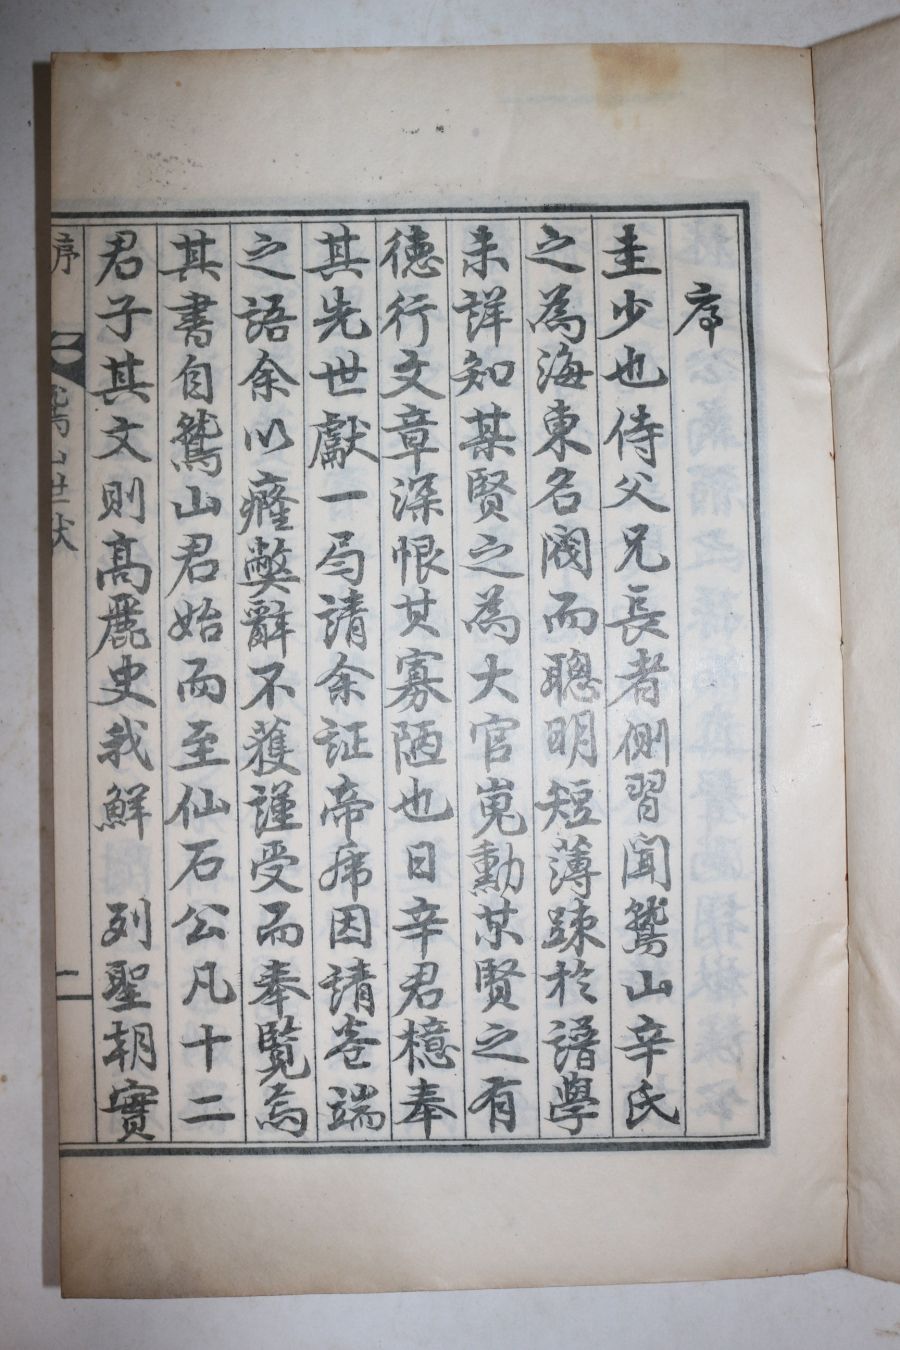 序
圭少也侍父兄長者側習聞鷲山辛氏
之為海東名閥而聰明短薄踈於譜學
未詳知某賢之為大官嵬勳某賢之有
德行文章深恨其寡陋也日辛君檍奉
其先世獻一局請余証帝乕因請卷端
之語余以癃獘辭不獲謹受而奉覽焉
其書自鷲山君始而至仙石公凡十二
君子其文則髙麗史我鮮列聖朝實
序 鷲山世献 一